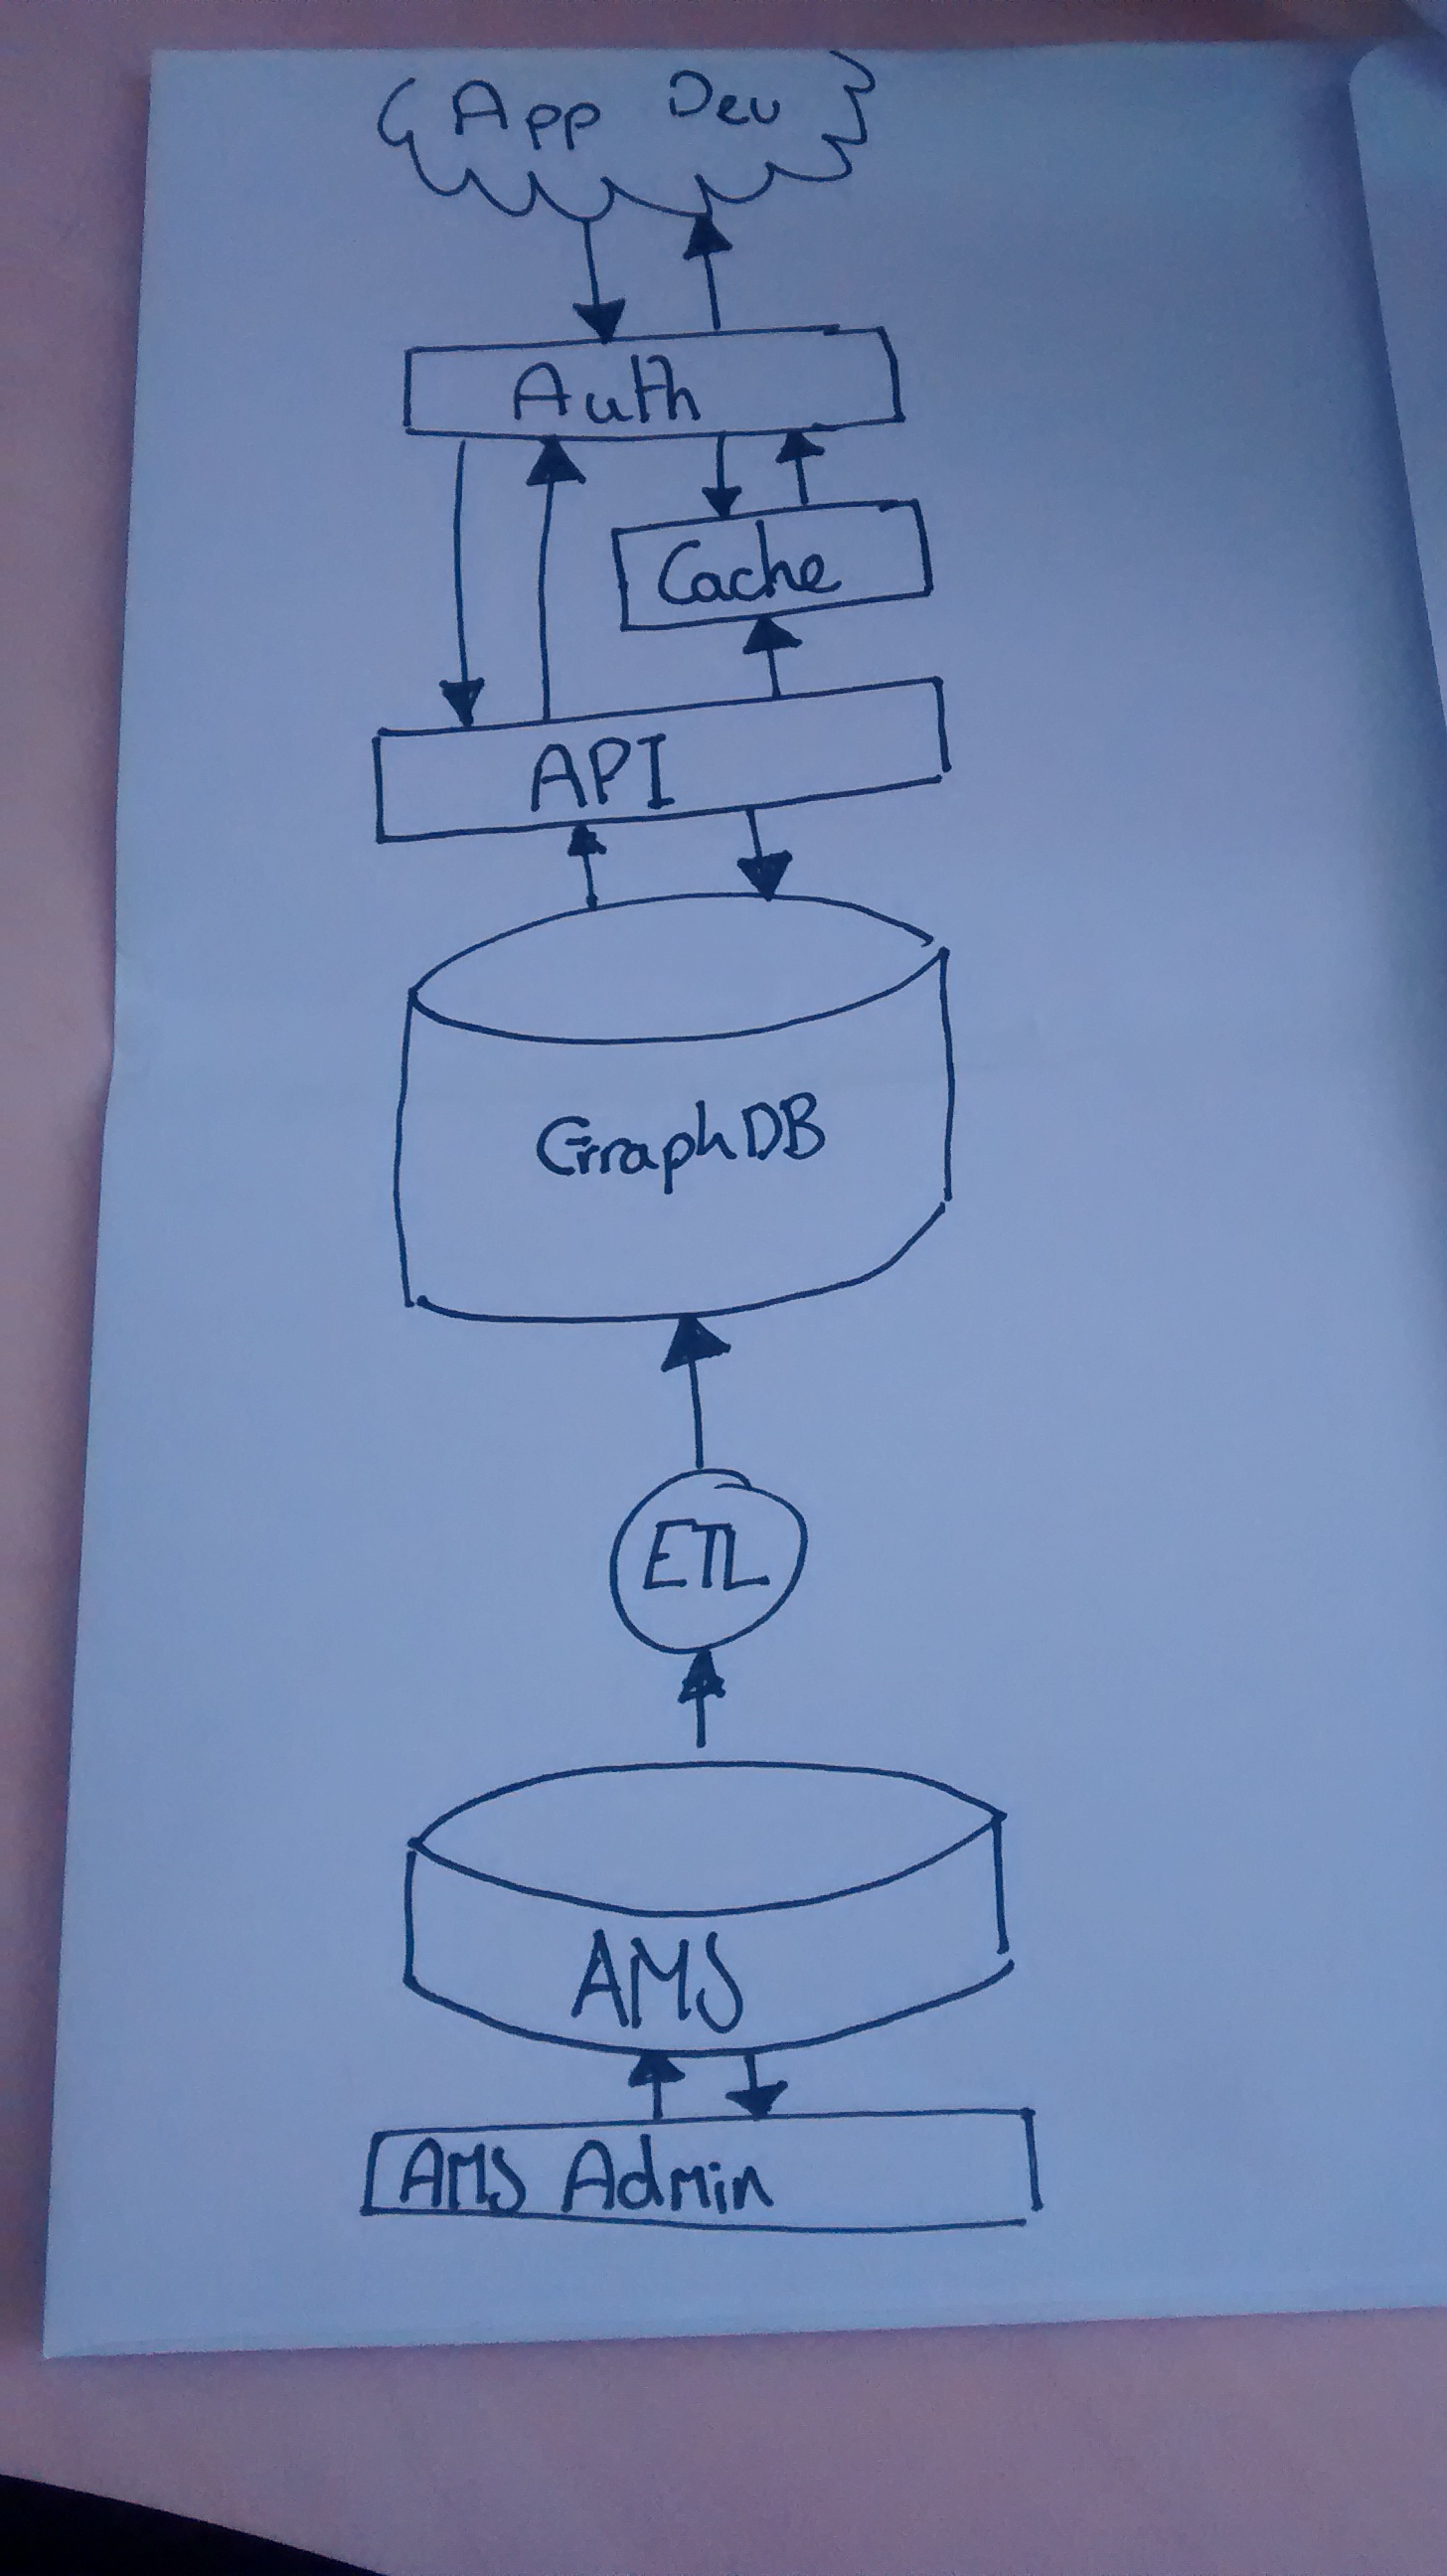 App Dev
Auth
Cache
API
GraphDB
ETL
AMS
AMS Admin